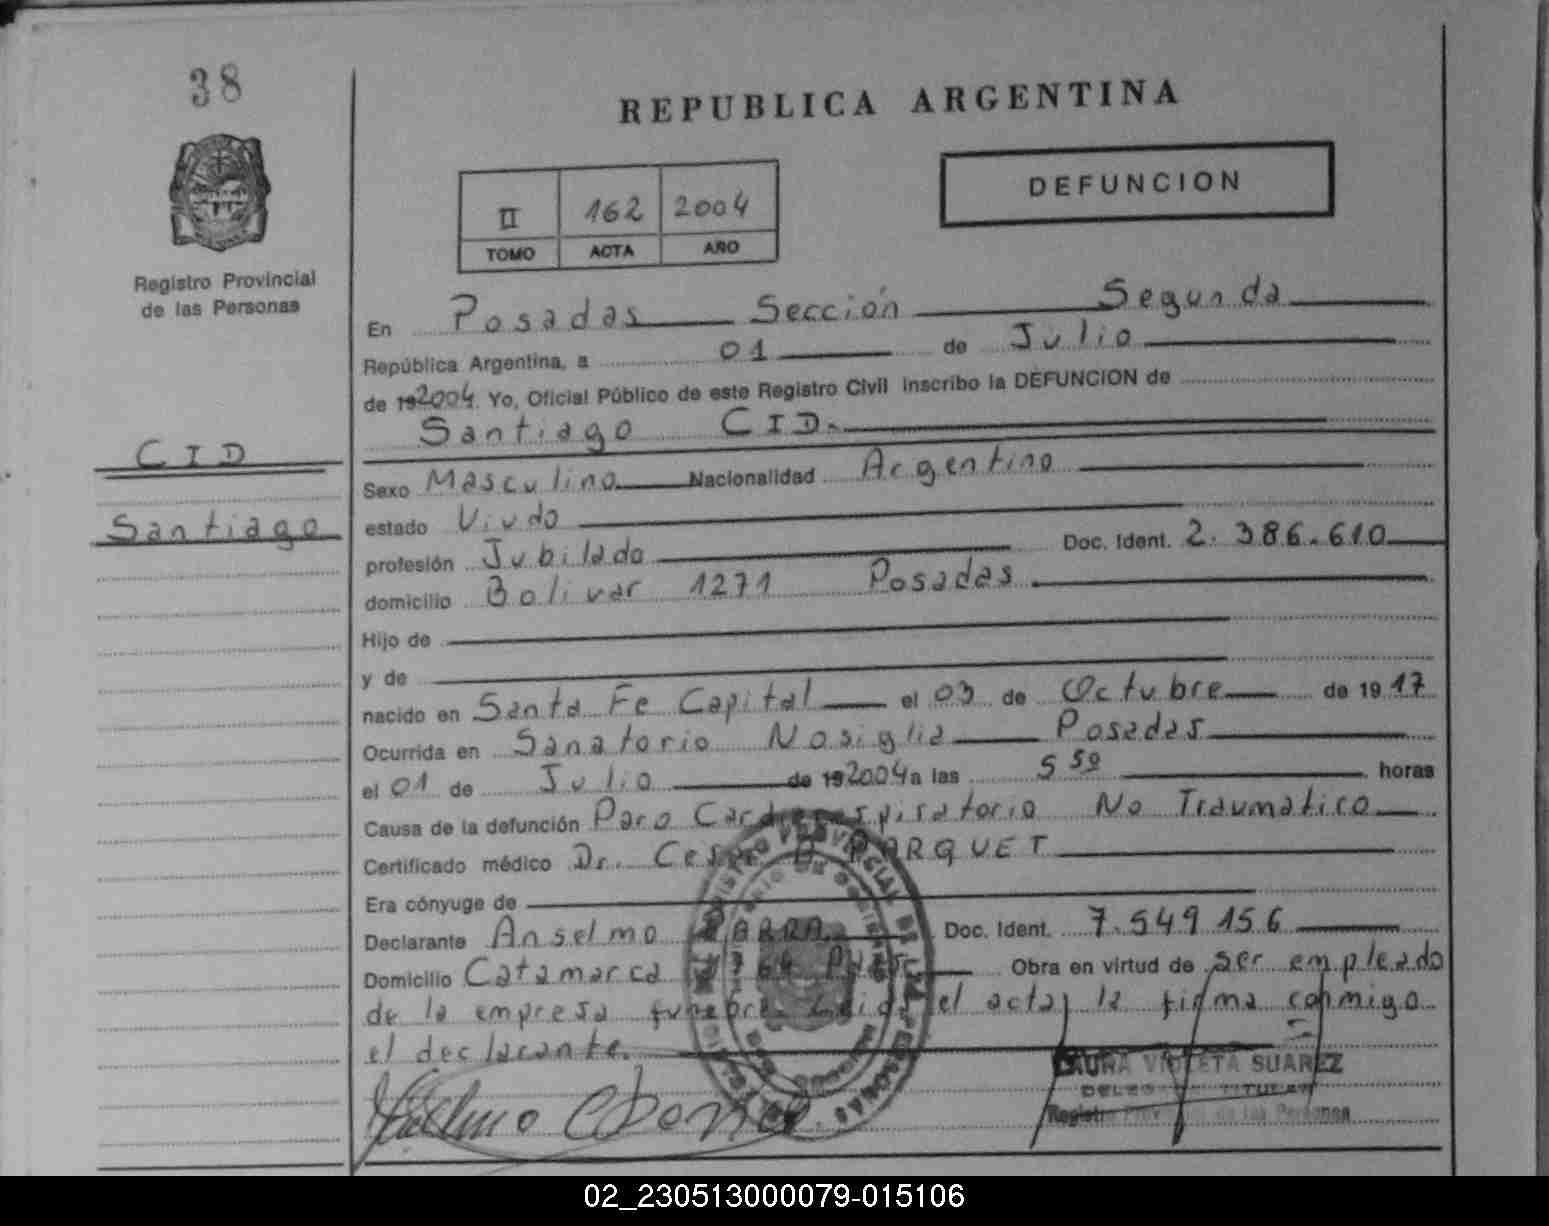 38
REPUBLICA ARGENTINA
DEFUNCION
II 162 2004
TOMO ACTA AÑO
Registro Provincial
de las Personas
En Posadas Sección Segunda
República Argentina, a 01 de Julio
de 192004. Yo, Oficial Público de este Registro Civil inscribo la DEFUNCION de
Santiago CID.
CID
Santiago
Sexo Masculino Nacionalidad Argentino
estado Viudo
profesión Jubilado Doc. Ident. 2.386.610
domicilio Bolivar 1271 Posadas
Hijo de
y de
nacido en Santa Fe Capital el 03 de Octubre de 1917
Ocurrida en Sanatorio Nosiglia Posadas
el 01 de Julio de 192004 a las 5 50 horas
Causa de la defunción Paro Cardiorespiratorio No Traumatico
Certificado médico Dr. Cesar PARQUET
Era cónyuge de
Declarante Anselmo Doc. Ident. 7.549.156
Domicilio Catamarca Obra en virtud de ser empleado
de la empresa funebre. Leida el acta, la firma conmigo
el declarante.
LAURA VIOLETA SUAREZ
DELEGADA TITULAR
Registro Provincial de las Personas
REGISTRO PROVINCIAL DE LAS PERSONAS
02_230513000079-015106